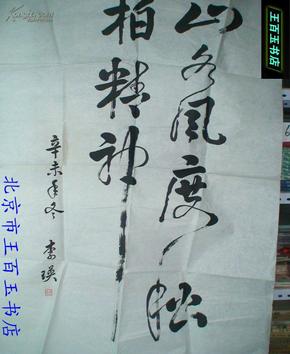 山水风度松
柏精神
辛未年冬 李瑛
北京市王百玉书店
王百玉书店